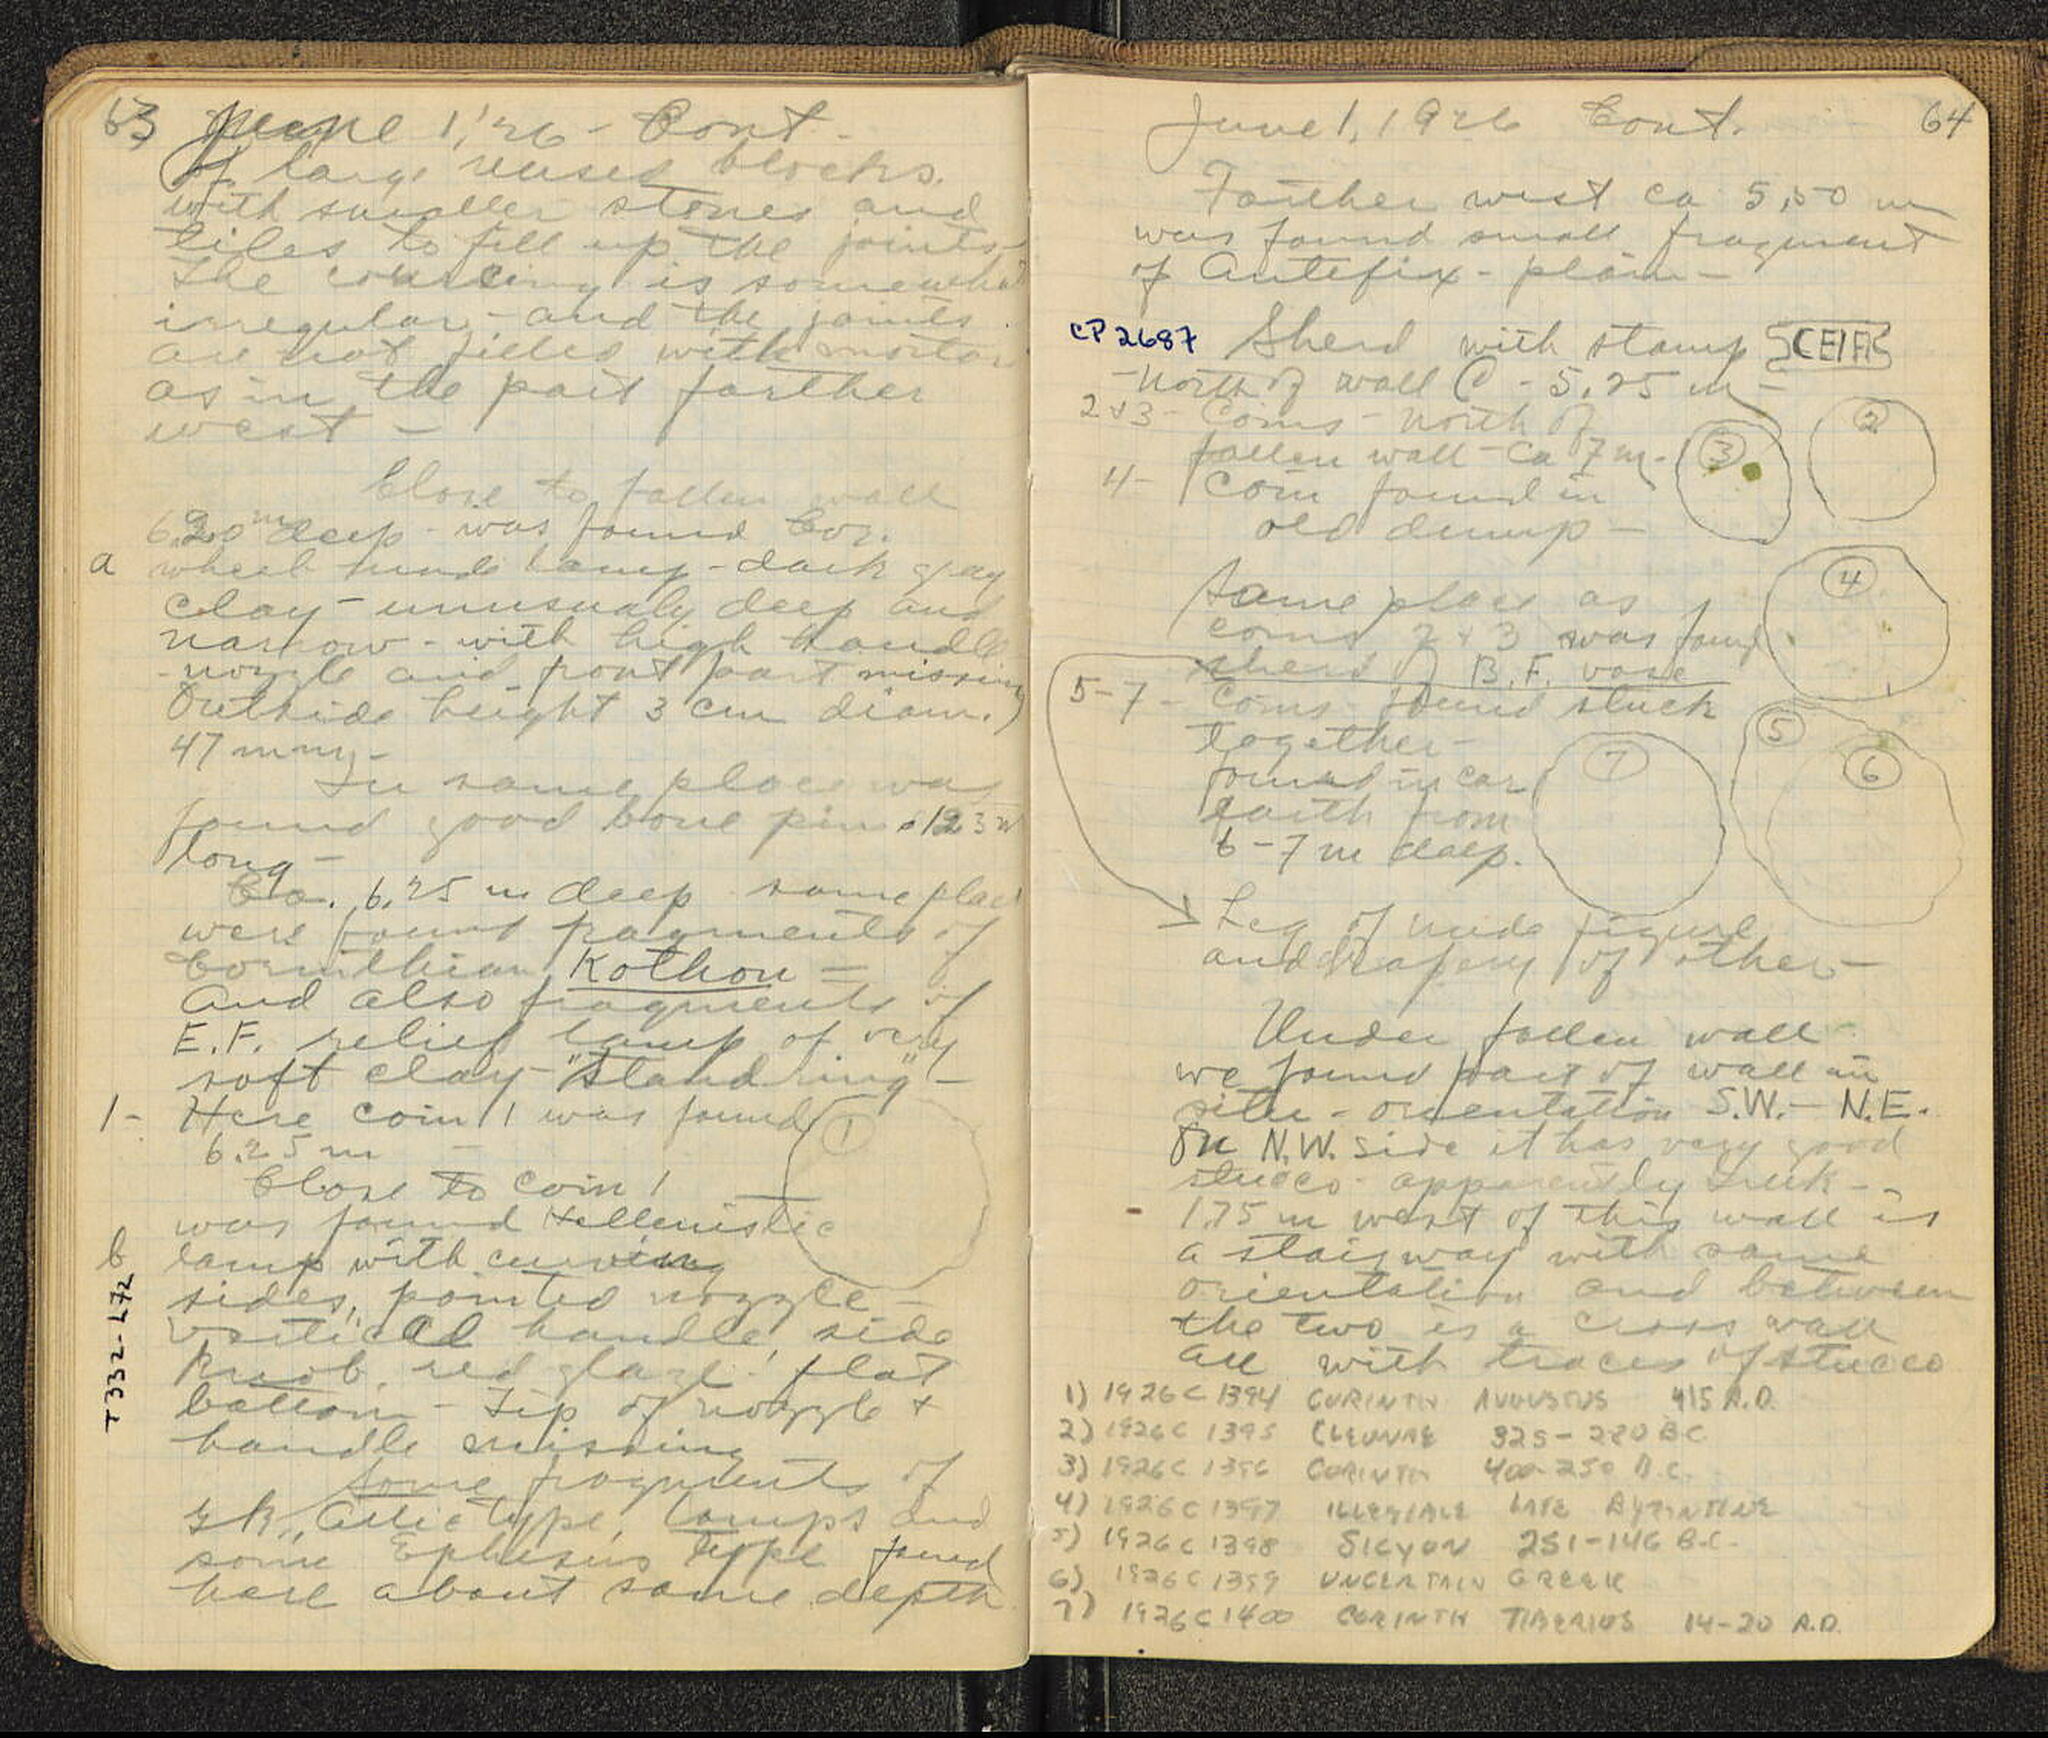 63 June 1, '26 - Cont.
of large reused blocks
with smaller stones and
tiles to fill up the joints -
The coursing is somewhat
irregular - and the joints
are not filled with mortar
as in the part farther
west -
Close to fallen wall
6.20 m deep - was found Cor.
a wheel made lamp - dark gray
clay - unusualy deep and
narrow - with high handle
- nozzle and front part missing
Outside height 3 cm diam.
47 mm -
In same place was
found good bone pin .123 m
long -
Ca. 6.25 m deep same place
were found fragments of
Corinthian Kothon -
and also fragments of
E.F. relief lamp of very
soft clay - "Standring" -
1- Here coin 1 was found
6.25 m -
①
Close to coin 1
was found Hellenistic
b lamp with curving
T332-L72
sides, pointed nozzle -
vertical handle, side
knob, red glaze, flat
bottom - Tip of nozzle +
handle missing
Some fragments of
Gk, Attic type, lamps and
some Ephesus type found
here about same depth
June 1, 1926 Cont. 64
Farther west ca 5.50 m
was found small fragment
of Antefix - plain -
CP 2687 Sherd with stamp
- North of wall C - 5.25 m -
2+3 - Coins - North of
fallen wall - Ca 7 m -
③ ②
4- Coin found in
old dump -
④
Same place as
coins 2 + 3 was found
sherd of B.F. vase
5-7 - Coins found stuck
together -
found in car
earth from
6-7 m deep.
⑤ ⑥ ⑦
Leg of nude figure
and drapery of other -
Under fallen wall
we found part of wall in
situ - orientation S.W. - N.E.
On N.W. side it has very good
stucco - apparently Greek -
- 1.75 m west of this wall is
a stairway with same
orientation and between
the two is a cross wall
all with traces of stucco
1) 1926 C 1394 CORINTH AUGUSTUS 4/5 A.D.
2) 1926 C 1395 CLEONAE 325-280 BC
3) 1926 C 1396 CORINTH 400-250 B.C.
4) 1926 C 1397 ILLEGIBLE LATE BYZANTINE
5) 1926 C 1398 SICYON 251-146 B.C.
6) 1926 C 1399 UNCERTAIN GREEK
7) 1926 C 1400 CORINTH TIBERIUS 14-20 A.D.